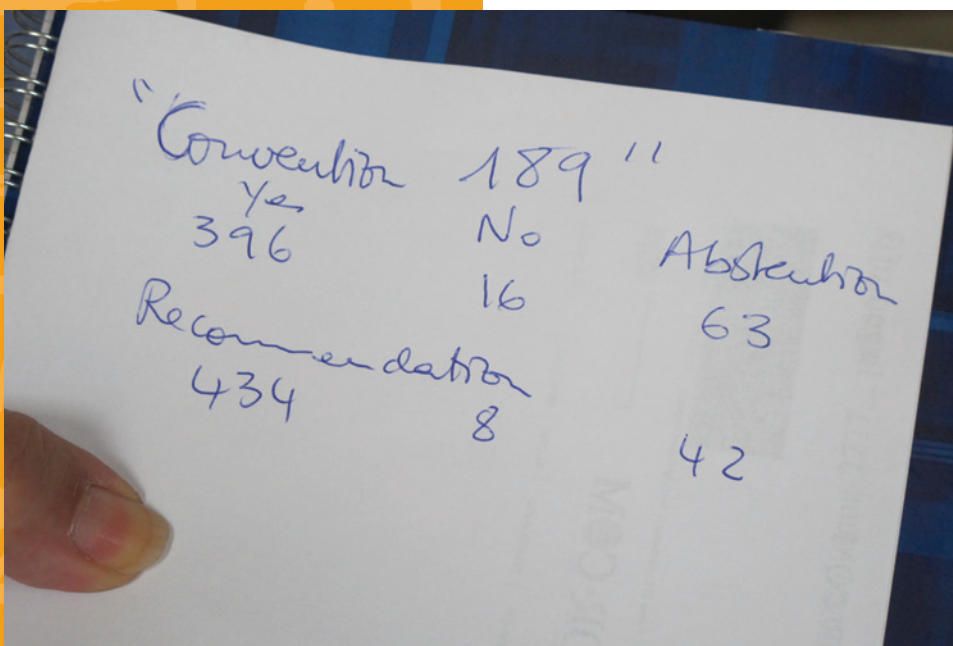 "Convention 189"
Yes No Abstention
396 16 63
Recommendation
434 8 42